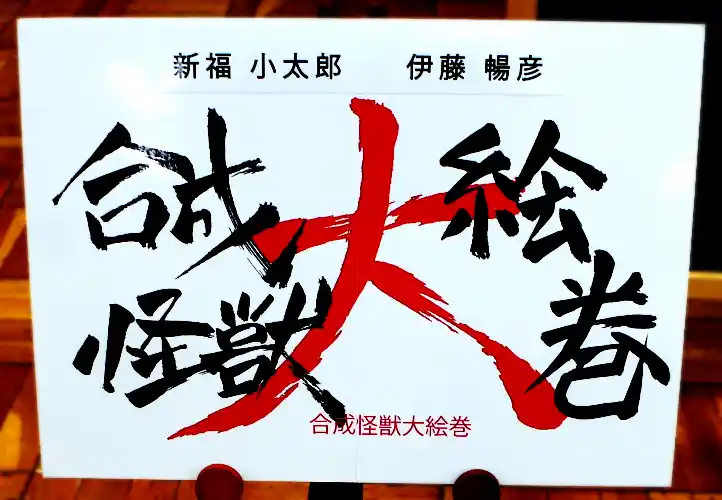 新福 小太郎 伊藤 暢彦
合成 大 絵
怪獣 巻
合成怪獣大絵巻